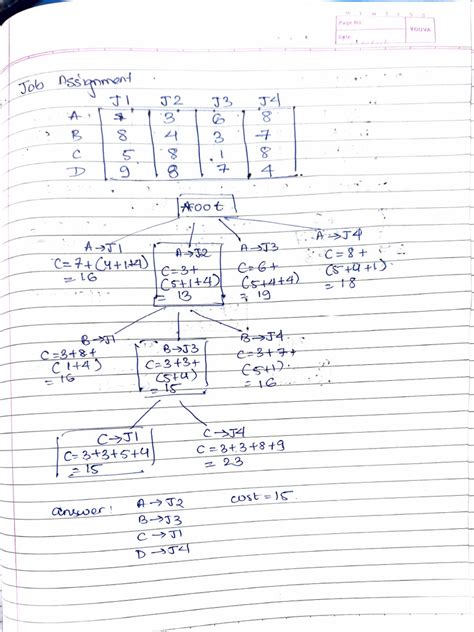 Page No.
Date
YOUVA
Job Assignment
J1 J2 J3 J4
A 7 3 6 8
B 8 4 3 7
C 5 8 1 8
D 9 8 7 4
Root
A→J1 A→J2 A→J3 A→J4
C=7+(4+1+4) C=3+ C=6+ C=8+
=16 (5+1+4) (5+4+4) (5+4+1)
=13 =19 =18
B→J1 B→J3 B→J4
C=3+8+ C=3+3+ C=3+7+
(1+4) (5+4) (5+1)
=16 =15 =16
C→J1 C→J4
C=3+3+5+4 C=3+3+8+9
=15 =23
answer: A→J2 cost=15.
B→J3
C→J1
D→J4